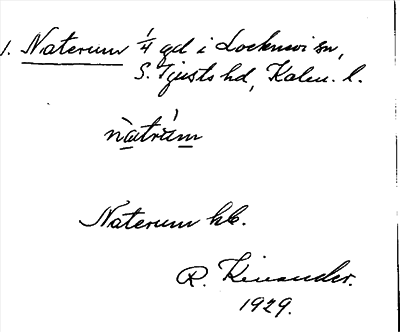 1. Naterum 1/4 gd i Locknevi sn,
S. Tjusts hd, Kalm. l.
nàtrúm
Naterum hb.
R. Kinander.
1929.